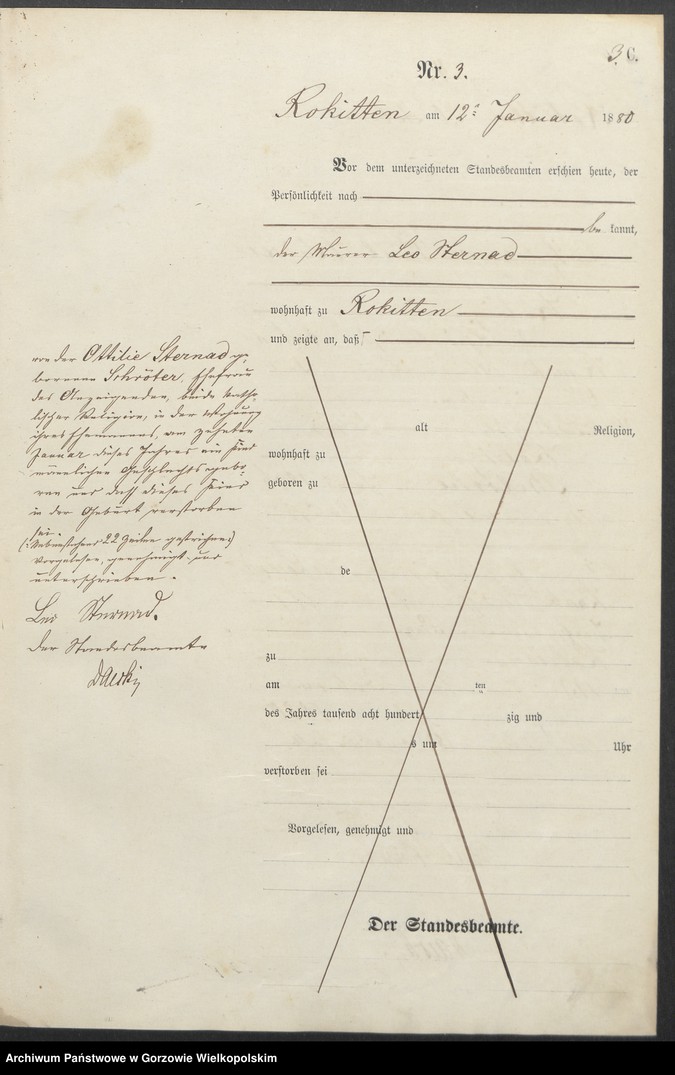 3.
C.
Nr. 3.
Rokitten am 12. Januar 1880
Vor dem unterzeichneten Standesbeamten erschien heute, der
Persönlichkeit nach
be kannt,
der Maurer Leo Sternad
wohnhaft zu Rokitten
und zeigte an, daß
von der Ottilie Sternad ge„
borenen Schröter, Ehefrau
des Anzeigenden, beide katho„
lischer Religion, in der Wohnung
ihres Ehemannes, am zehnten
Januar dieses Jahres ein Kind
männlichen Geschlechts gebo„
ren und daß dieses Kind
in der Geburt verstorben
sei.
(: Nebenstehend 22 Zeilen gestrichen:)
Vorgelesen, genehmigt und
unterschrieben.
Leo Sternad.
Der Standesbeamte
alt Religion,
wohnhaft zu
geboren zu
de
zu
am ten
des Jahres tausend acht hundert zig und
s um Uhr
verstorben sei
Vorgelesen, genehmigt und
Der Standesbeamte.
Archiwum Państwowe w Gorzowie Wielkopolskim